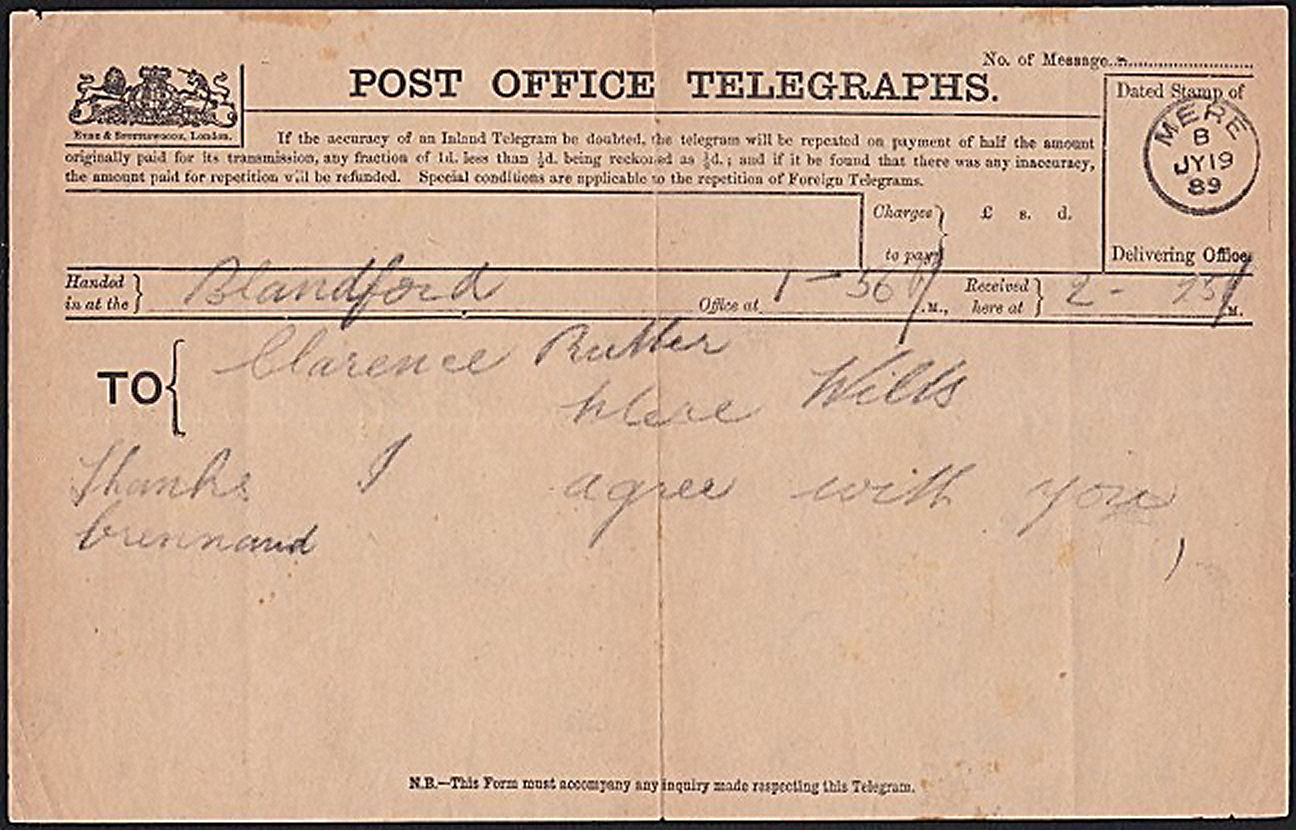 No. of Message
POST OFFICE TELEGRAPHS.
EYRE & SPOTTISWOODE, London.
If the accuracy of an Inland Telegram be doubted, the telegram will be repeated on payment of half the amount
originally paid for its transmission, any fraction of 1d. less than ½d. being reckoned as ½d.; and if it be found that there was any inaccuracy,
the amount paid for repetition will be refunded. Special conditions are applicable to the repetition of Foreign Telegrams.
Dated Stamp of
MERE
B
JY19
89
Delivering Office
Charges to pay } £ s. d.
Handed in at the } Blandford Office at 1-56 .M., Received here at } 2- M.
TO { Clarence Rutter
Mere Wilts
Thanks I agree with you
N.B.—This Form must accompany any inquiry made respecting this Telegram.